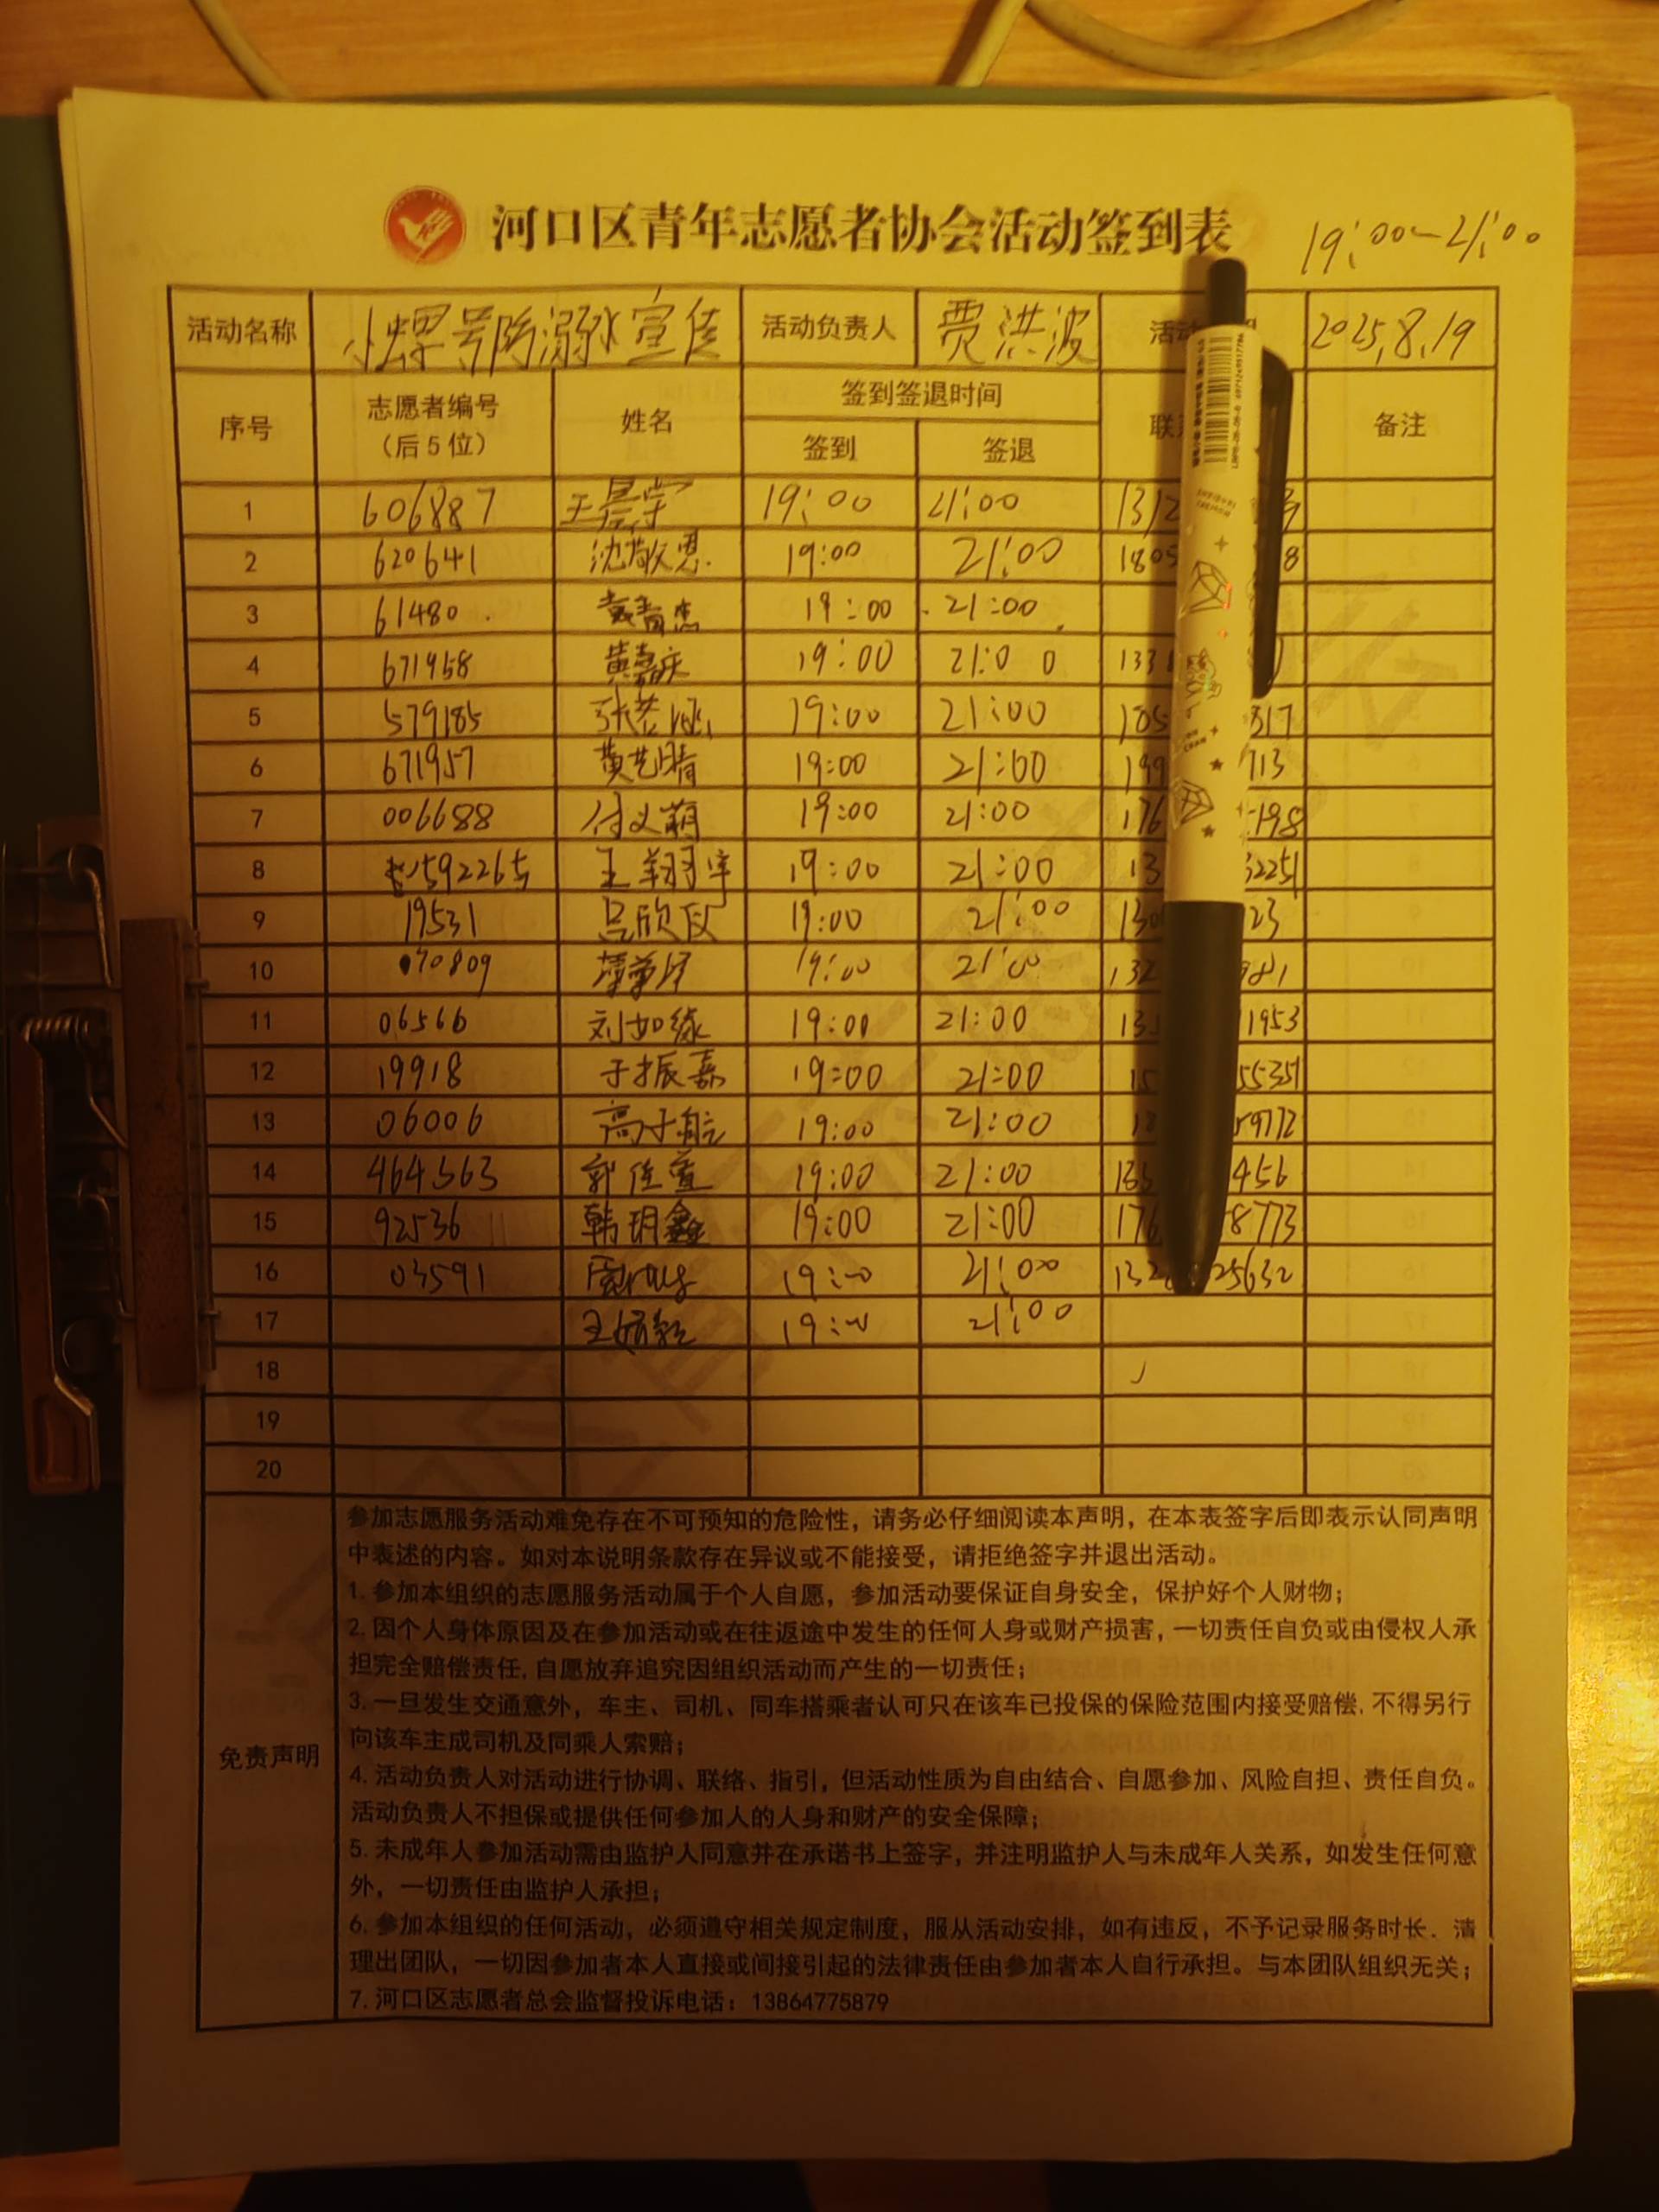 河口区青年志愿者协会活动签到表
19:00-21:00
活动名称 小螺号防溺水宣传 活动负责人 贾洪波 活动 2025.8.19
序号 志愿者编号（后5位） 姓名 签到签退时间 联系 备注
签到 签退
1 606887 王景宇 19:00 21:00
2 620641 沈敬恩 19:00 21:00
3 61480 19:00 21:00
4 671958 黄嘉庆 19:00 21:00
5 579185 张若涵 19:00 21:00
6 671957 黄艺晴 19:00 21:00
7 006688 付义萌 19:00 21:00
8 592265 王翔宇 19:00 21:00
9 19531 吕欣仪 19:00 21:00
10 070809 19:00 21:00
11 06566 刘如缘 19:00 21:00
12 19918 于振嘉 19:00 21:00
13 06006 高子航 19:00 21:00
14 464363 郭佳萱 19:00 21:00
15 92536 韩玥鑫 19:00 21:00
16 03591 19:00 21:00
17 19:00 21:00
18
19
20
免责声明
参加志愿服务活动难免存在不可预知的危险性，请务必仔细阅读本声明，在本表签字后即表示认同声明
中表述的内容。如对本说明条款存在异议或不能接受，请拒绝签字并退出活动。
1. 参加本组织的志愿服务活动属于个人自愿，参加活动要保证自身安全，保护好个人财物；
2. 因个人身体原因及在参加活动或在往返途中发生的任何人身或财产损害，一切责任自负或由侵权人承
担完全赔偿责任，自愿放弃追究因组织活动而产生的一切责任；
3. 一旦发生交通意外，车主、司机、同车搭乘者认可只在该车已投保的保险范围内接受赔偿，不得另行
向该车主成司机及同乘人索赔；
4. 活动负责人对活动进行协调、联络、指引，但活动性质为自由结合、自愿参加、风险自担、责任自负。
活动负责人不担保或提供任何参加人的人身和财产的安全保障；
5. 未成年人参加活动需由监护人同意并在承诺书上签字，并注明监护人与未成年人关系，如发生任何意
外，一切责任由监护人承担；
6. 参加本组织的任何活动，必须遵守相关规定制度，服从活动安排，如有违反，不予记录服务时长．清
理出团队，一切因参加者本人直接或间接引起的法律责任由参加者本人自行承担。与本团队组织无关；
7. 河口区志愿者总会监督投诉电话：13864775879